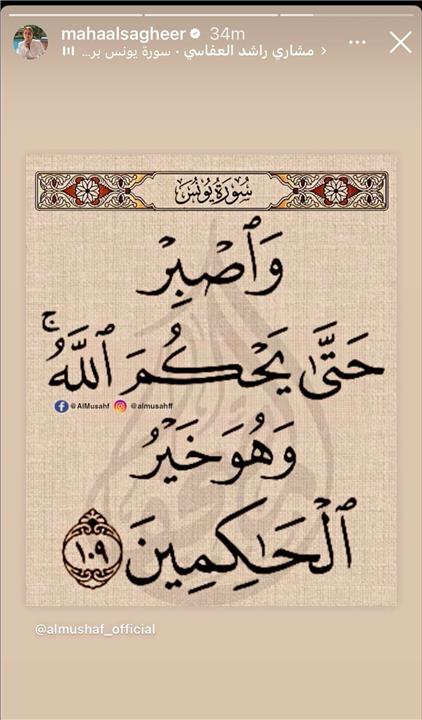 mahaalsagheer 34m
مشاري راشد العفاسي · سورة يونس بر...
سُورَةُ يُونُسَ
وَٱصۡبِرۡ
حَتَّىٰ يَحۡكُمَ ٱللَّهُۚ
@AlMusahf @almusahff
وَهُوَ خَيۡرُ
ٱلۡحَٰكِمِينَ ١٠٩
@almushaf_official